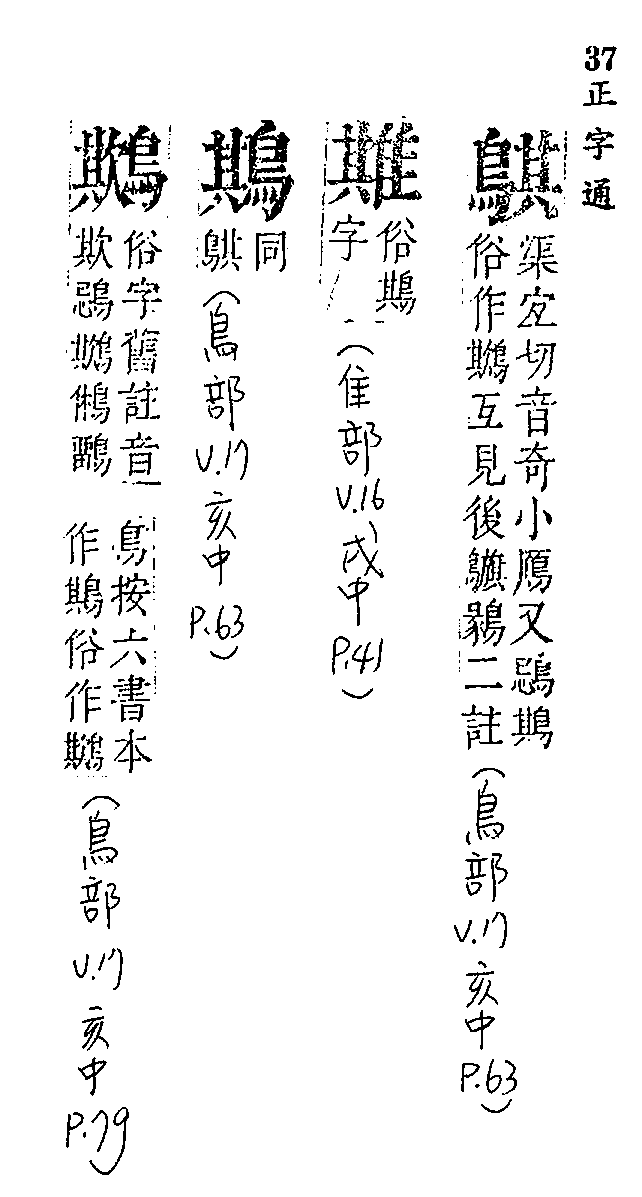 37 正字通
渠宜切音奇小鴈又鵋鶀
俗作 互見後 二註
(鳥部 V.17 亥中 P.63)
俗鶀
字
(隹部 V.16、戌中 P.41)
鶀
同
(鳥部 V.17 亥中 P.63)
俗字舊註音
欺鵋 鵂鶹
鳥按六書本
作鶀俗作
(鳥部 V.17 亥中 P.79)